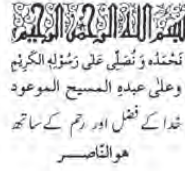 بسم الله الرحمن الرحيم
نَحْمَدُہٗ وَ نُصَلِّی عَلٰی رَسُوْلِہِ الْکَرِیْمِ
وعلیٰ عبدہِ المسیح الموعود
خدا کے فضل اور رحم کے ساتھ
ھو النّاصــر